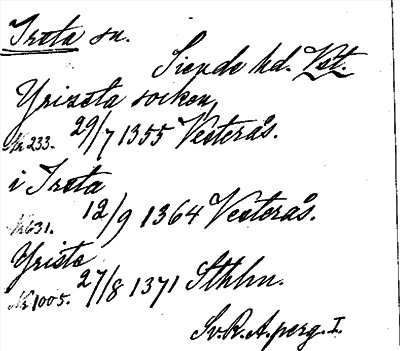 Irsta sn.
Siende hd. Vst.
Yrizsta socken
N:233. 29/7 1355 Vesterås.
i Irsta
N:631. 12/9 1364 Vesterås.
Yrista
N:1005. 27/8 1371 Sthlm.
Sv.R.A. perg. I.